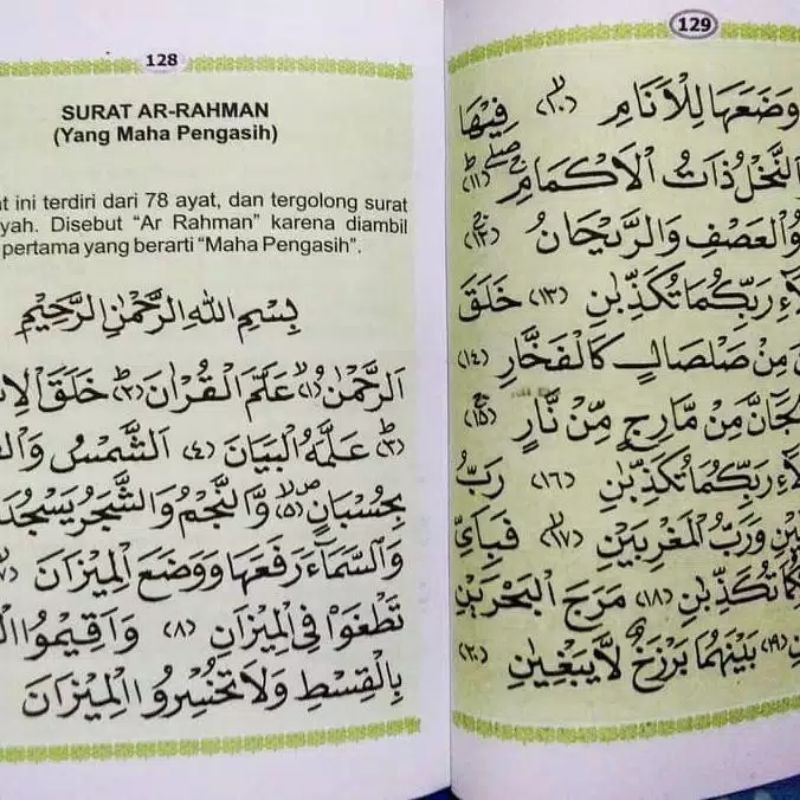 128
SURAT AR-RAHMAN
(Yang Maha Pengasih)
ini terdiri dari 78 ayat, dan tergolong surat
yah. Disebut “Ar Rahman” karena diambil
pertama yang berarti “Maha Pengasih”.
بِسْمِ اللهِ الرَّحْمٰنِ الرَّحِيْمِ
اَلرَّحْمٰنُ (١) عَلَّمَ الْقُرْاٰنَ (٢) خَلَقَ
(٣) عَلَّمَهُ الْبَيَانَ (٤) اَلشَّمْسُ
بِحُسْبَانٍ (٥) وَالنَّجْمُ وَالشَّجَرُ يَسْجُدَ
وَالسَّمَاءَ رَفَعَهَا وَوَضَعَ الْمِيْزَانَ (٧
تَطْغَوْا فِى الْمِيْزَانِ (٨) وَاَقِيْمُوا
بِالْقِسْطِ وَلَا تُخْسِرُوا الْمِيْزَانَ
129
وَضَعَهَا لِلْاَنَامِ (١٠) فِيْهَا
النَّخْلُ ذَاتُ الْاَكْمَامِ (١١)
وَالْعَصْفِ وَالرَّيْحَانُ (١٢)
رَبِّكُمَا تُكَذِّبٰنِ (١٣) خَلَقَ
مِنْ صَلْصَالٍ كَالْفَخَّارِ (١٤)
الْجَانَّ مِنْ مَّارِجٍ مِّنْ نَّارٍ (١٥)
رَبِّكُمَا تُكَذِّبٰنِ (١٦) رَبُّ
وَرَبُّ الْمَغْرِبَيْنِ (١٧) فَبِاَيِّ
تُكَذِّبٰنِ (١٨) مَرَجَ الْبَحْرَيْنِ
(١٩) بَيْنَهُمَا بَرْزَخٌ لَّا يَبْغِيٰنِ (٢٠)